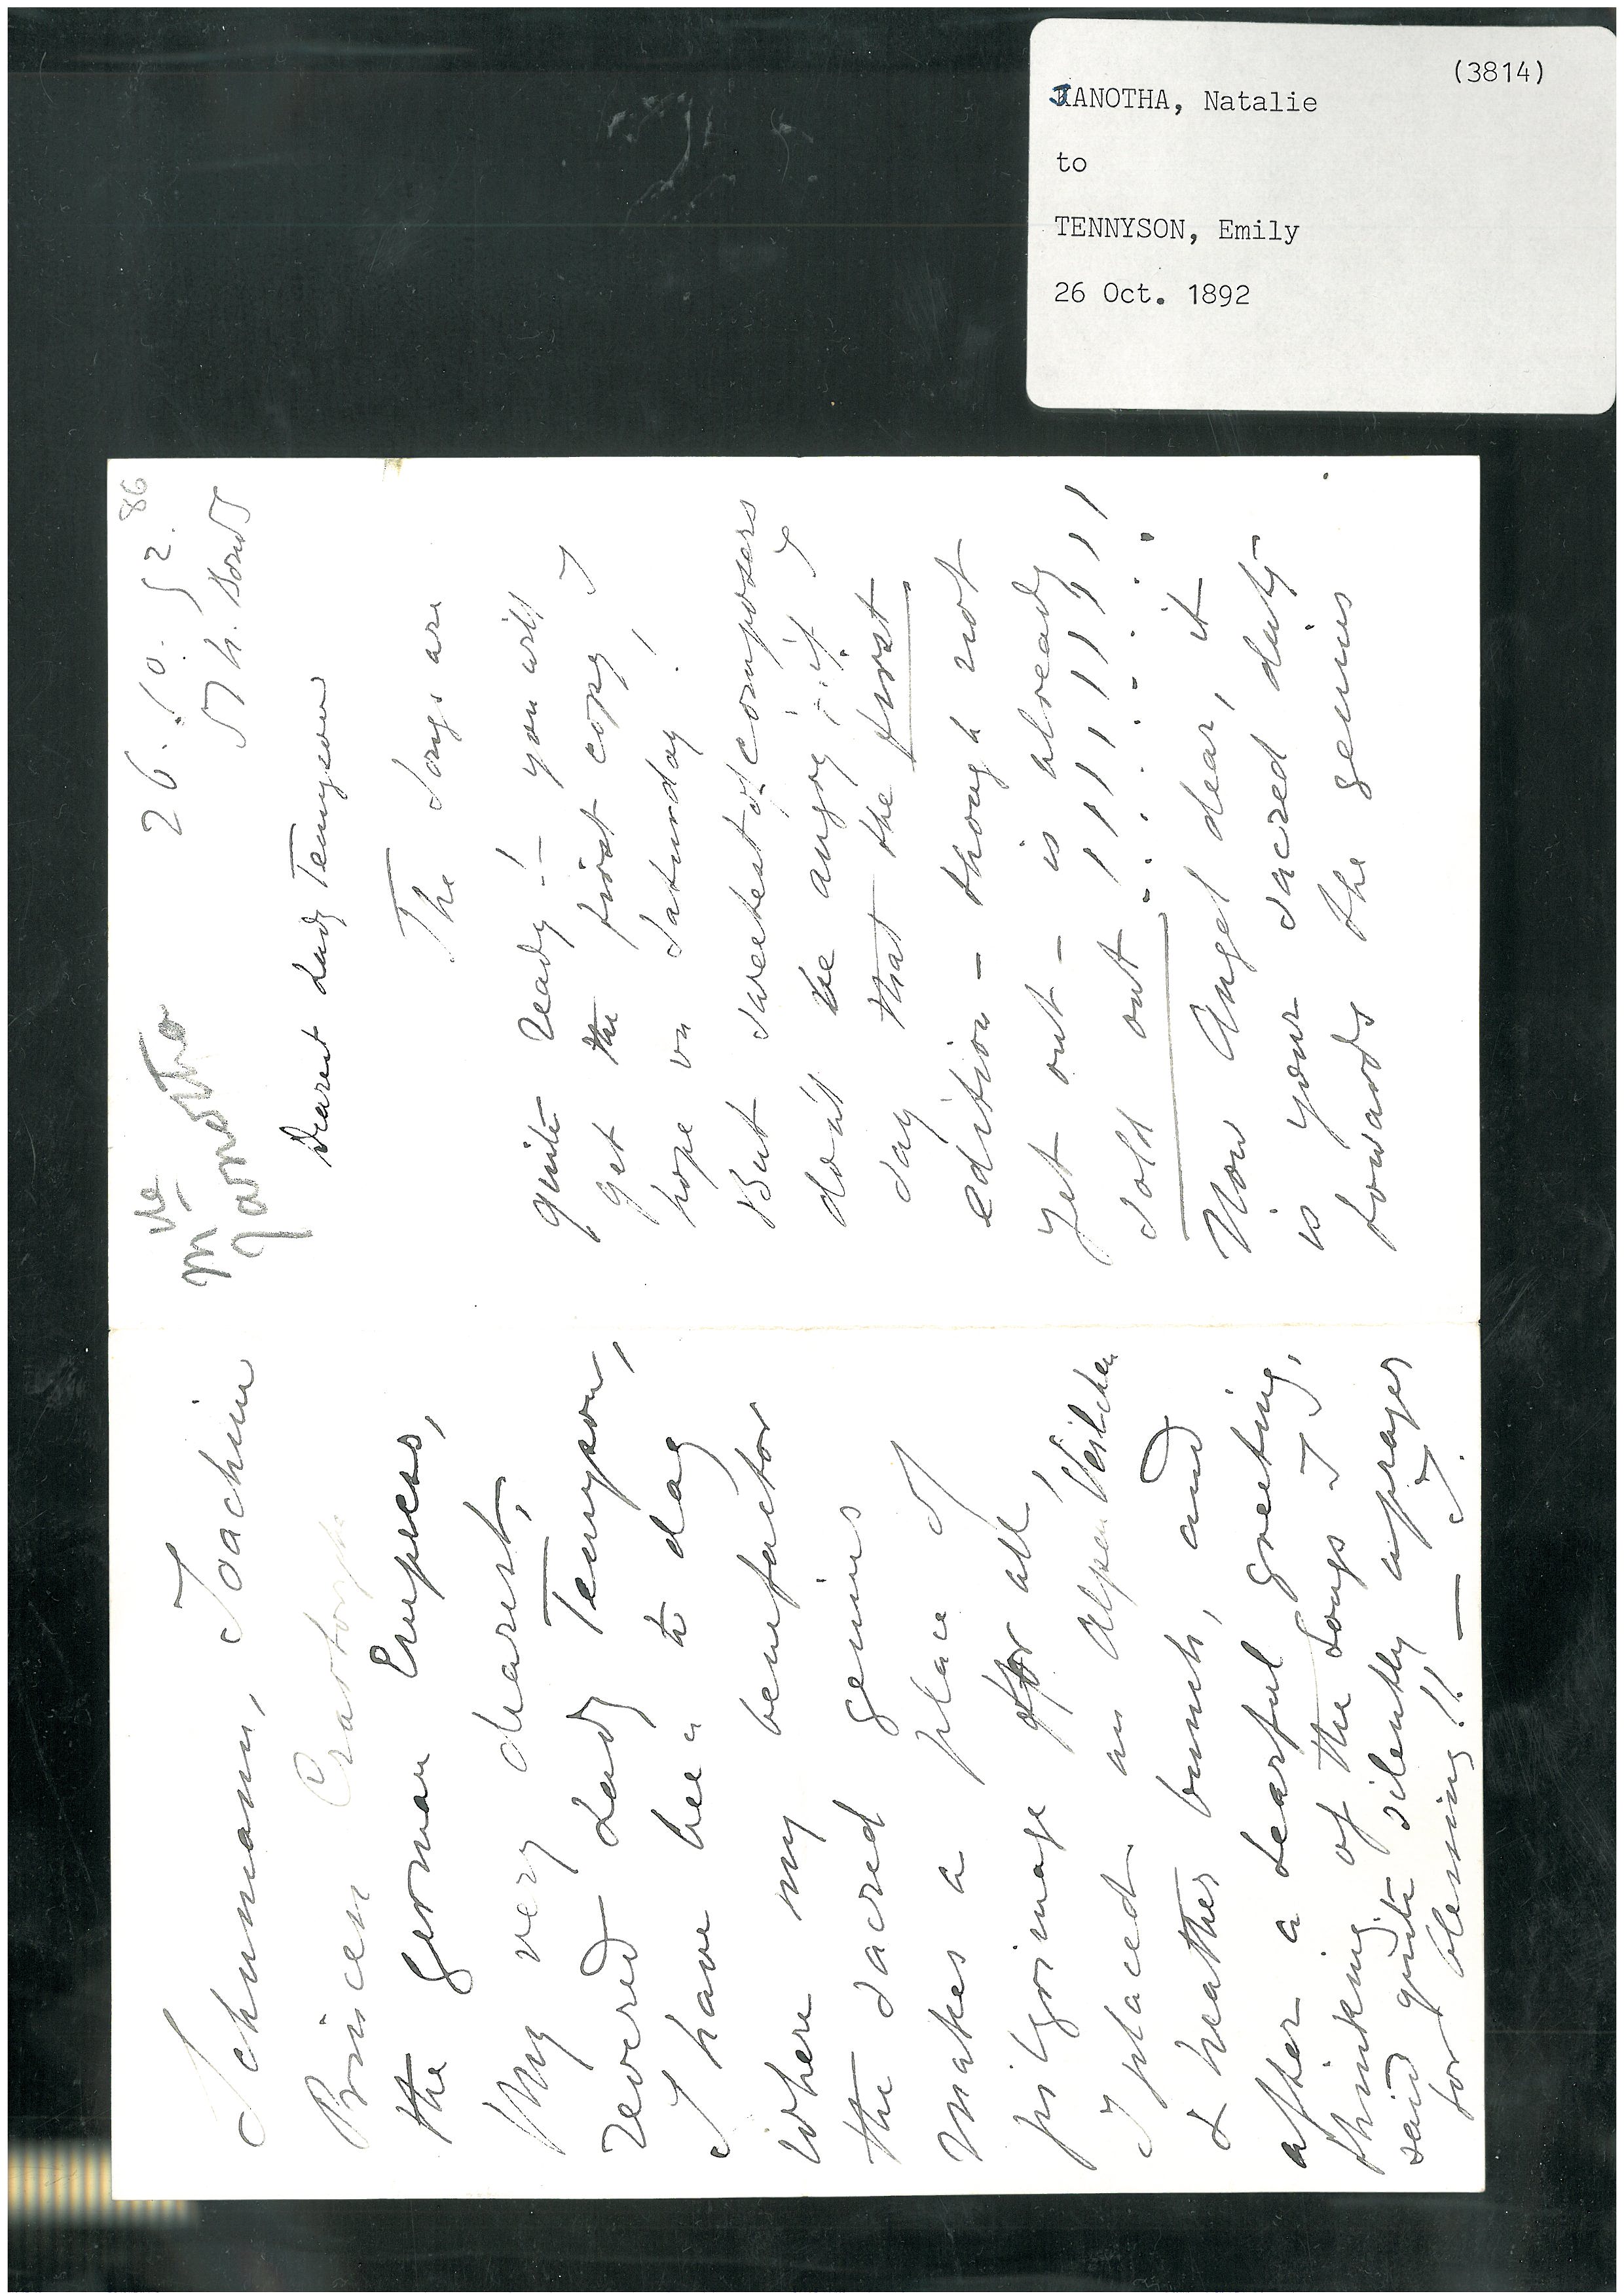 (3814)
JANOTHA, Natalie
to
TENNYSON, Emily
26 Oct. 1892
86
Mde
Janotha
26. 10. 92.
Dearest Lady Tennyson
The Songs are
quite ready! – you will
get the first copy I
hope on Saturday!
But sweetest of composers
don't be angry if I
say that the first
edition – though not
yet out – is already
sold out !!!!!!!!!
Now Angel dear, it
is your sacred duty
towards the genius
Schumann, Joachim
Princess
the german Empress,
My very dearest,
revered Lady Tennyson,
I have been to day
where my benefactor
the sacred genius
makes a place of
pilgrimage for all,
I placed an Alpen Veilchen
& heather bunch, and
after a tearful greeting,
thinking of the Songs I
said quite silently a prayer
for blessing!! – I.